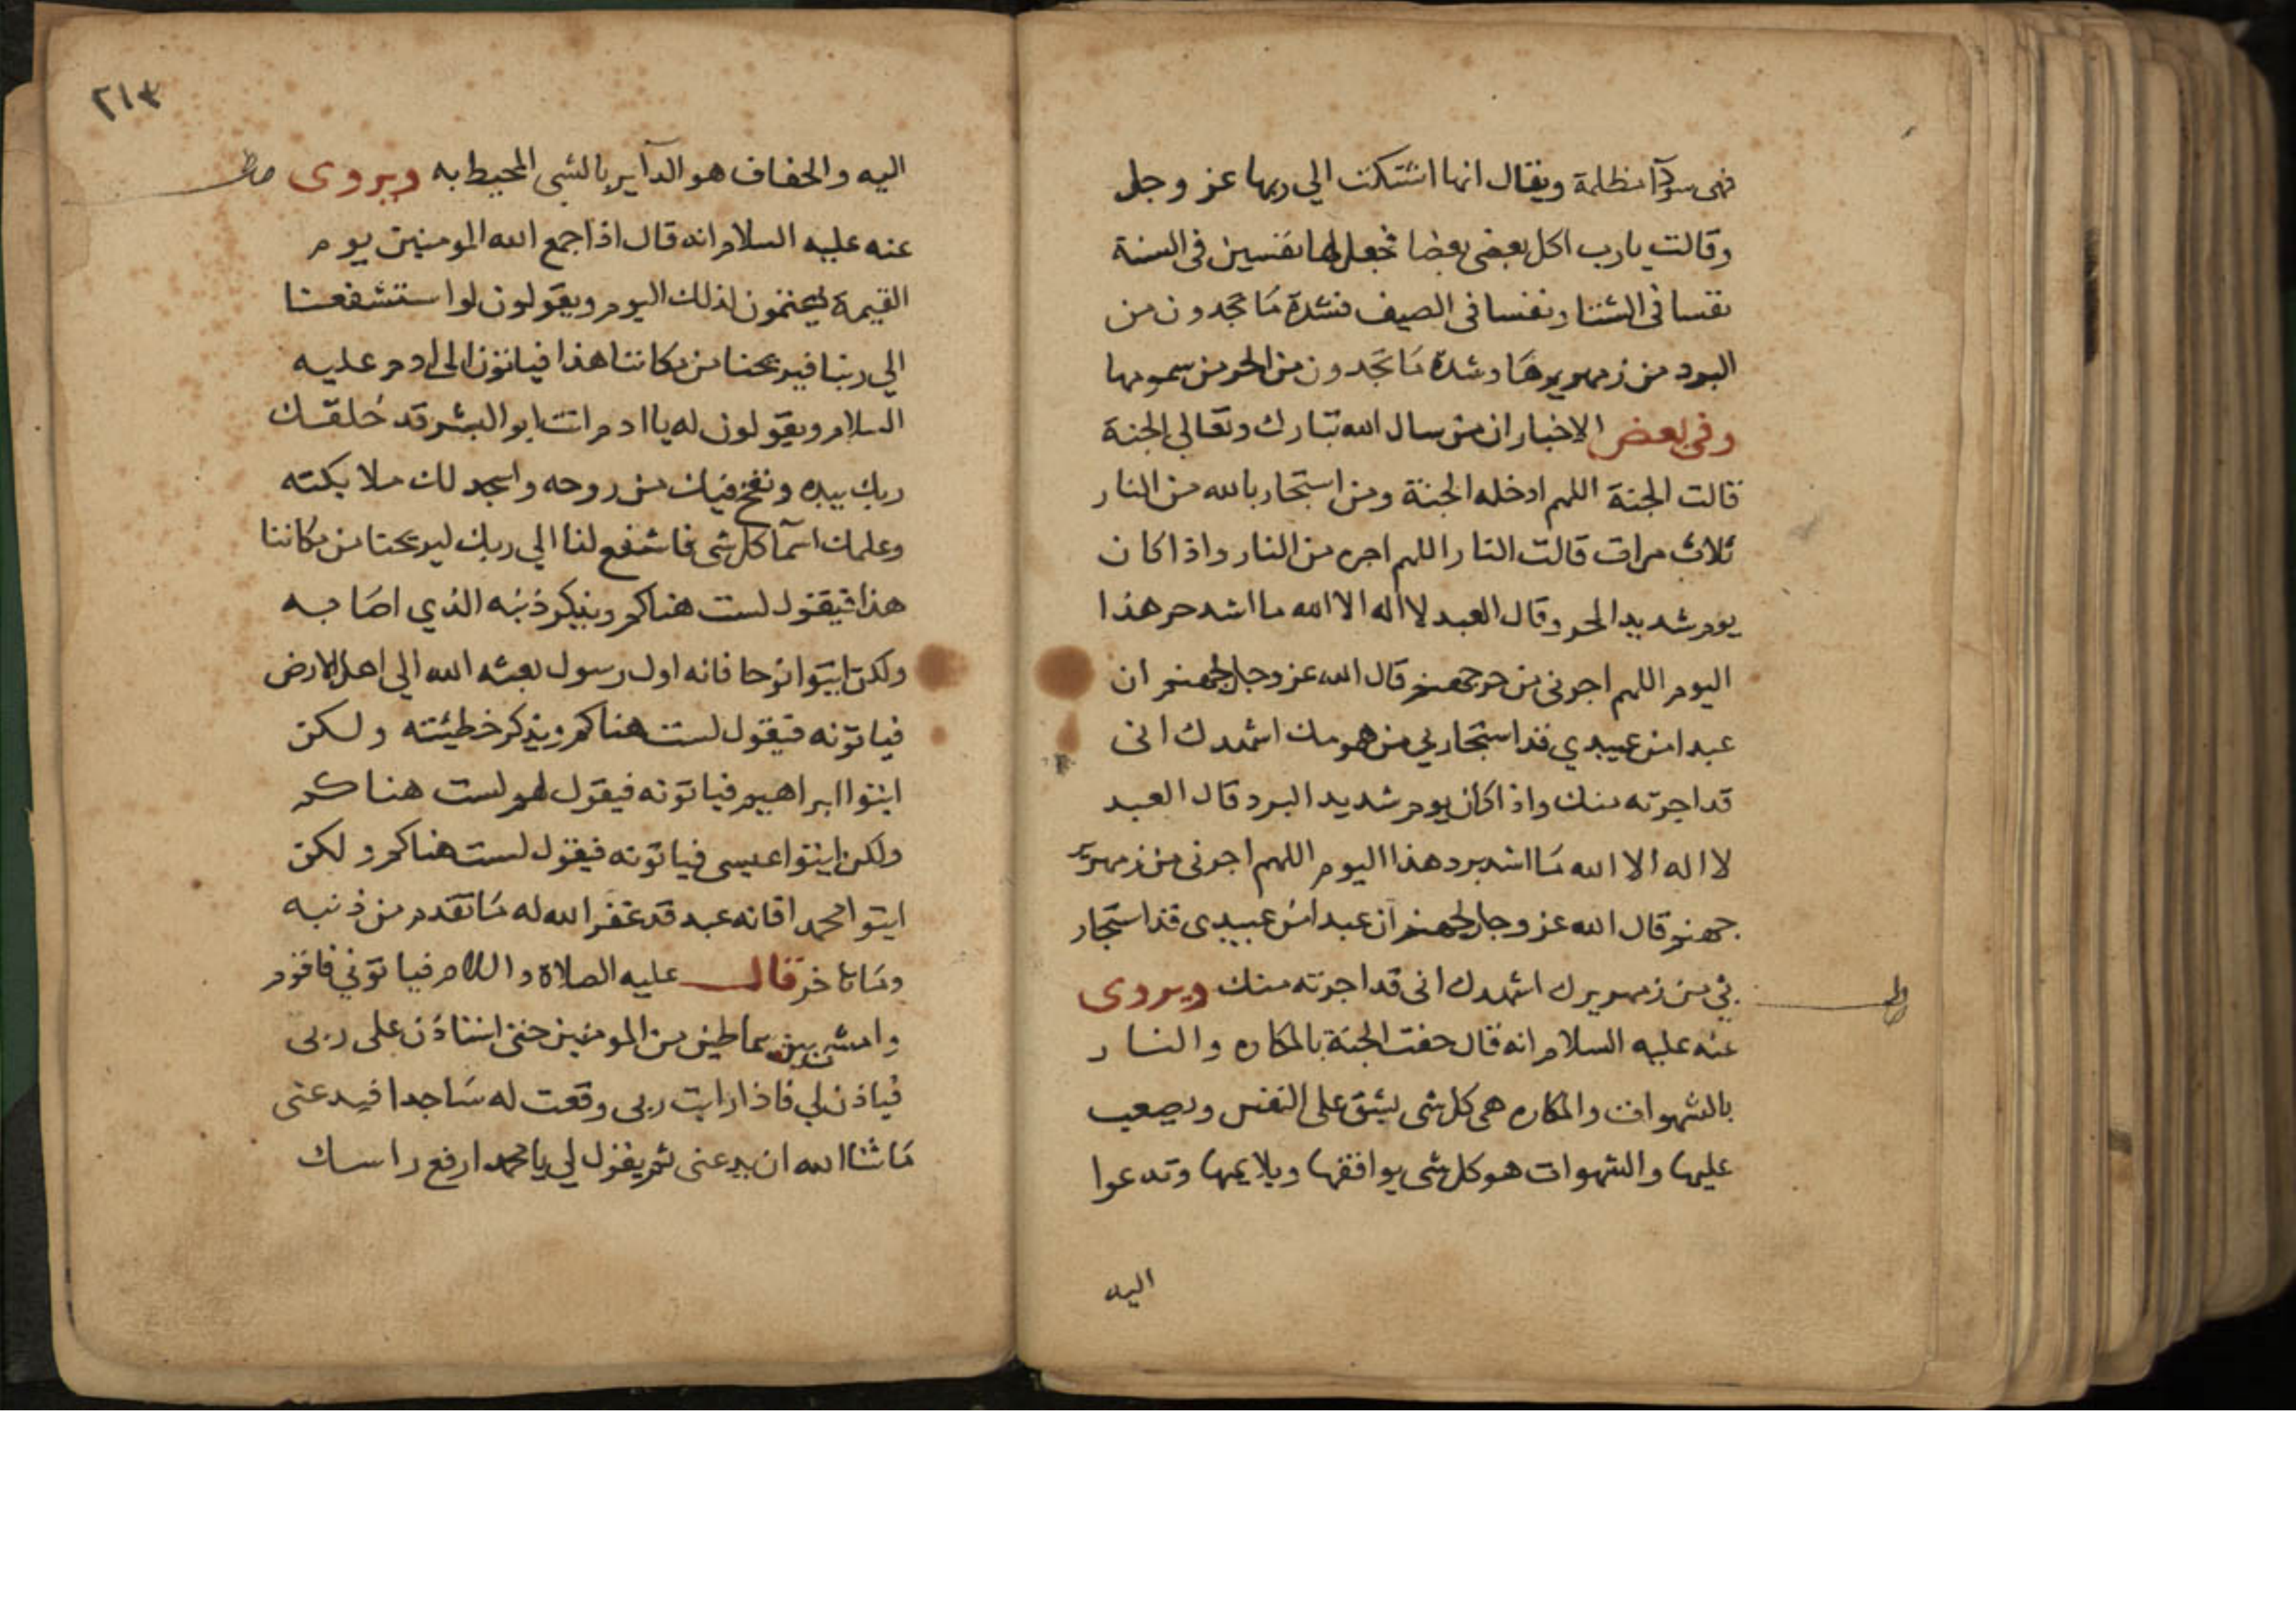 فهى سودآ مظلمة ويقال انها اشتكت الي ربها عز وجل
وقالت يارب اكل بعضى بعضا فجعل لها نفسين فى السنة
نفسا فى الشتا ونفسا فى الصيف فشدة ما تجدون من
البرد من زمهريرها وشدة ما تجدون من الحر من سمومها
وفى بعض الاخبار ان من سال الله تبارك وتعالي الجنة
قالت الجنة اللهم ادخله الجنة ومن استجار بالله من النار
ثلاث مرات قالت النار اللهم اجره من النار واذا كان
يوم شديد الحر وقال العبد لا اله الا الله ما اشد حر هذا
اليوم اللهم اجرنى من حر جهنم قال الله عز وجل لجهنم ان
عبدا من عبيدي قد استجار بي من هومك اشهدك انى
قد اجرته منك واذا كان يوم شديد البرد قال العبد
لا اله الا الله ما اشد برد هذا اليوم اللهم اجرنى من زمهرير
جهنم قال الله عز وجل لجهنم ان عبدا من عبيدى قد استجار
بي من زمهريرك اشهدك انى قد اجرته منك ويروى
عنه عليه السلام انه قال حفت الجنة بالمكاره والنار
بالشهوات والمكاره هى كل شى يشق على النفس ويصعب
عليها والشهوات هو كل شى يوافقها ويلايمها وتدعوا
اليه
٢١٣
اليه والحفاف هو الدآير بالشى المحيط به ويروى
عنه عليه السلام انه قال اذا جمع الله المومنين يوم
القيمة يهتمون لذلك اليوم ويقولون لو استشفعنا
الي ربنا فيريحنا من مكاننا هذا فياتون الى ادم عليه
السلام ويقولون له يا ادم انت ابو البشر قد خلقك
ربك بيده ونفخ فيك من روحه واسجد لك ملايكته
وعلمك اسمآ كل شى فاشفع لنا الي ربك ليريحنا من مكاننا
هذا فيقول لست هناكم ويذكر ذنبه الذي اصابه
ولكن ايتوا نوحا فانه اول رسول بعثه الله الي اهل الارض
فياتونه فيقول لست هناكم ويذكر خطيئته ولكن
ايتوا ابراهيم فياتونه فيقول لهم لست هناكم
ولكن ايتوا عيسى فياتونه فيقول لست هناكم ولكن
ايتوا محمدا فانه عبد قد غفر الله له ما تقدم من ذنبه
وما تاخر قال عليه الصلاة والسلام فياتوني فاقوم
وامشى بين سماطين من المومنين حتى استاذن على ربى
فياذن لي فاذا رايت ربى وقعت له ساجدا فيدعنى
ما شا الله ان يدعنى ثم يقول لي يا محمد ارفع راسك